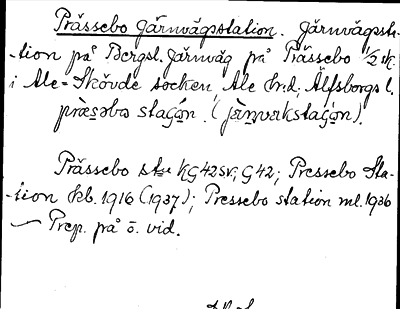 Prässebo järnvägsstation. Järnvägssta-
-tion på Bergsl. järnväg på Prässebo 1/2 tk.
i Ale-Skövde socken, Ale hd, Älfsborgs l.
præsəbo staʃón. (jæ̀ɳvɛkstaʃón).
Prässebo stn KG 42 SV; G 42; Pressebo Sta-
-tion kb. 1916 (1937); Pressebo station ml. 1936
— Prep. på o. vid.